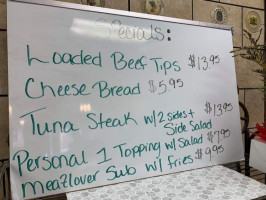 Specials:
Loaded Beef Tips $13.95
Cheese Bread $5.95
Tuna Steak w/2 sides + $13.95
Side Salad
Personal 1 Topping w/ Salad $7.95
meatlover Sub w/ fries $9.95